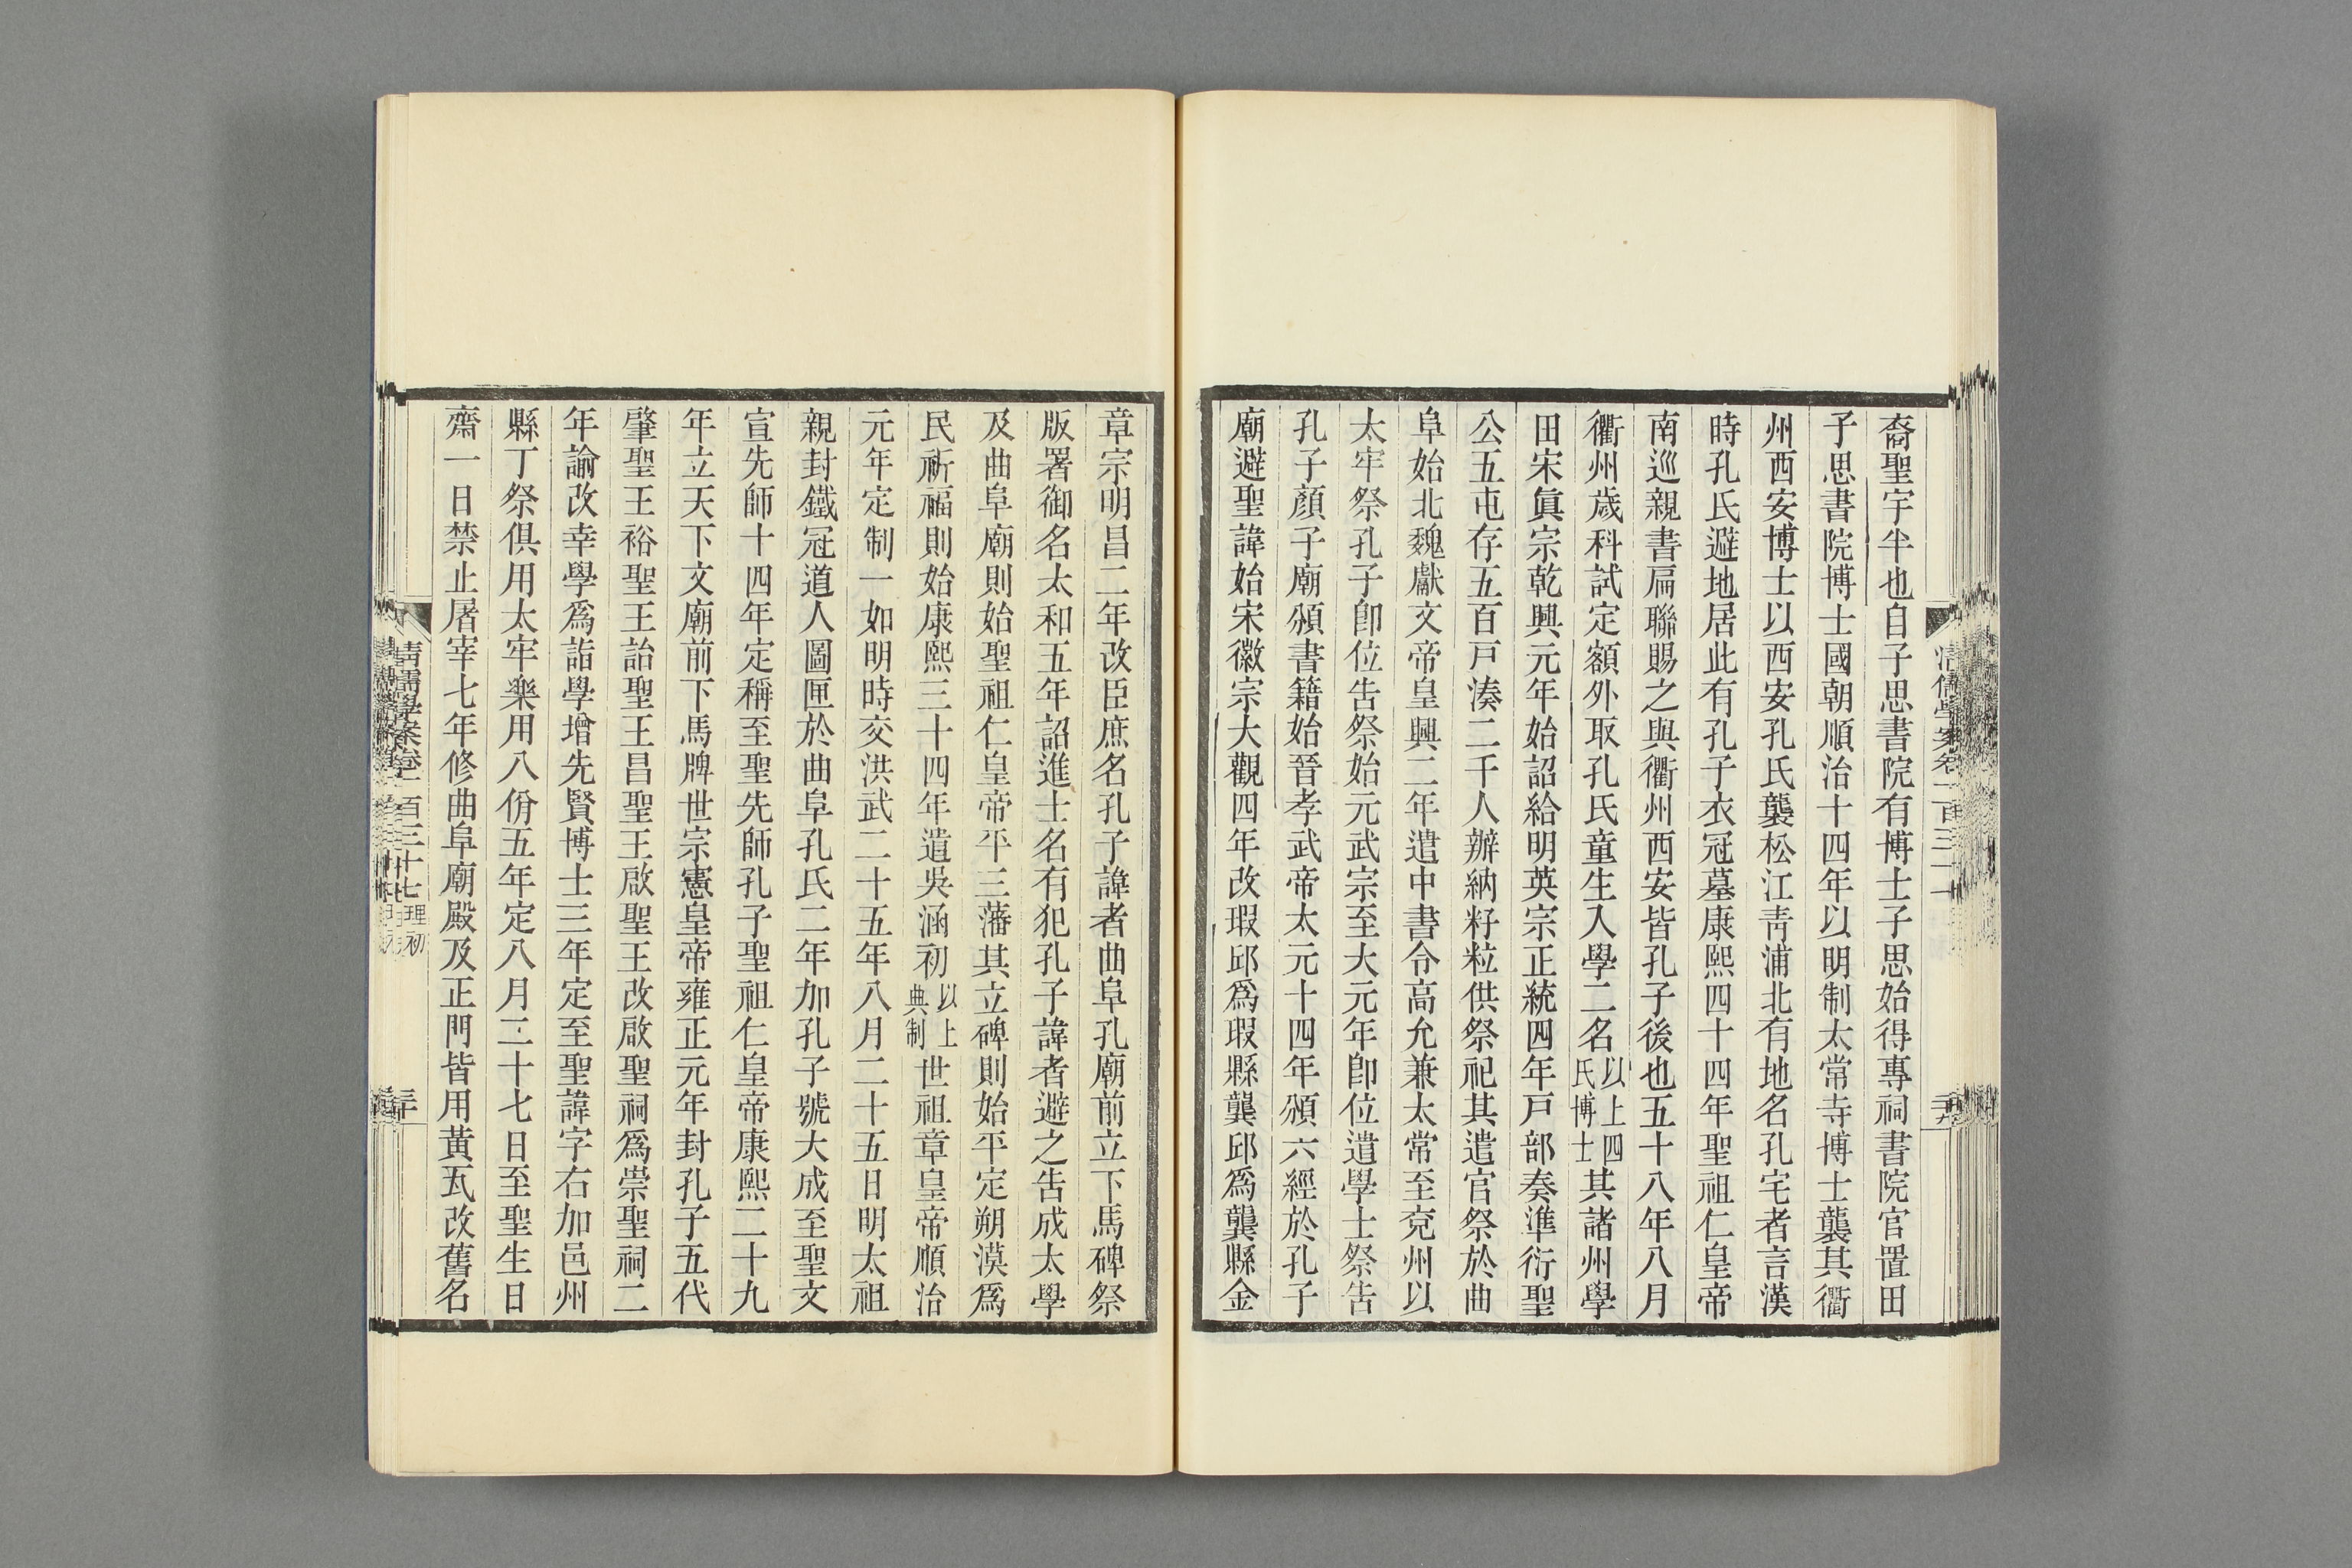 裔聖宇半也自子思書院有博士子思始得專祠書院官置田
子思書院博士國朝順治十四年以明制太常寺博士襲其衢
州西安博士以西安孔氏襲松江靑浦北有地名孔宅者言漢
時孔氏避地居此有孔子衣冠墓康熙四十四年聖祖仁皇帝
南巡親書扁聯賜之與衢州西安皆孔子後也五十八年八月
衢州歲科試定額外取孔氏童生入學二名以上四氏博士其諸州學
田宋眞宗乾興元年始詔給明英宗正統四年戸部奏準衍聖
公五屯存五百戸湊二千人辦納籽粒供祭祀其遣官祭於曲
阜始北魏獻文帝皇興二年遣中書令高允兼太常至兗州以
太牢祭孔子卽位告祭始元武宗至大元年卽位遣學士祭告
孔子顏子廟頒書籍始晉孝武帝太元十四年頒六經於孔子
廟避聖諱始宋徽宗大觀四年改瑕邱爲瑕縣龔邱爲龔縣金
章宗明昌二年改臣庶名孔子諱者曲阜孔廟前立下馬碑祭
版署御名太和五年詔進士名有犯孔子諱者避之告成太學
及曲阜廟則始聖祖仁皇帝平三藩其立碑則始平定朔漠爲
民祈福則始康熙三十四年遣吳涵初以上典制世祖章皇帝順治
元年定制一如明時交洪武二十五年八月二十五日明太祖
親封鐵冠道人圖匣於曲阜孔氏二年加孔子號大成至聖文
宣先師十四年定稱至聖先師孔子聖祖仁皇帝康熙二十九
年立天下文廟前下馬牌世宗憲皇帝雍正元年封孔子五代
肇聖王裕聖王詒聖王昌聖王啟聖王改啟聖祠爲崇聖祠二
年諭改幸學爲詣學增先賢博士三年定至聖諱字右加邑州
縣丁祭俱用太牢樂用八佾五年定八月二十七日至聖生日
齋一日禁止屠宰七年修曲阜廟殿及正門皆用黃瓦改舊名
清儒學案卷一百三十七 理初 三十